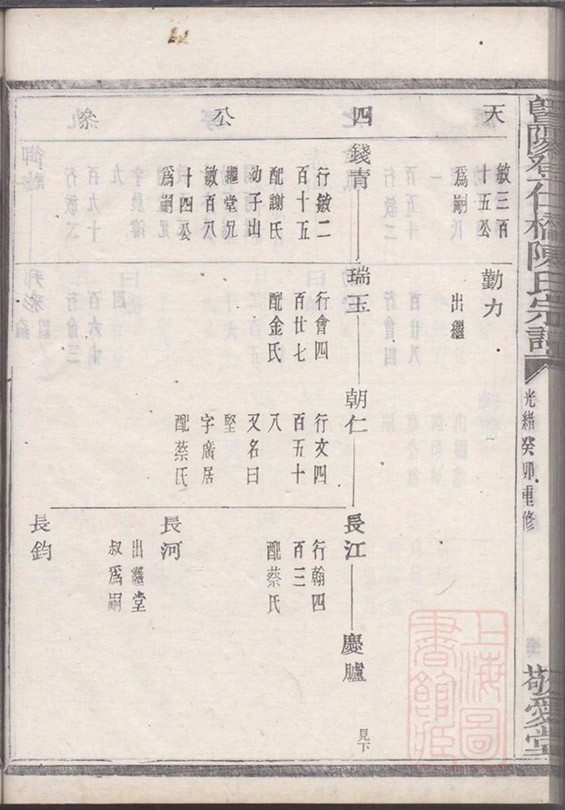 暨陽登仕橋陳氏宗譜
光緒癸卯重修
敬愛堂
天四公衆
敏三百
十五公
爲嗣
勤力
出繼
錢青
行敏二
百十五
配謝氏
幼子出
繼堂兄
敏百八
十四公
爲嗣
瑞玉
行會四
百廿七
配金氏
朝仁
行文四
百五十
八
又名曰
堅
字廣居
配蔡氏
長江
行翰四
百三
配蔡氏
慶臚
見下
長河
出繼堂
叔爲嗣
長鈞
上海圖
書館藏